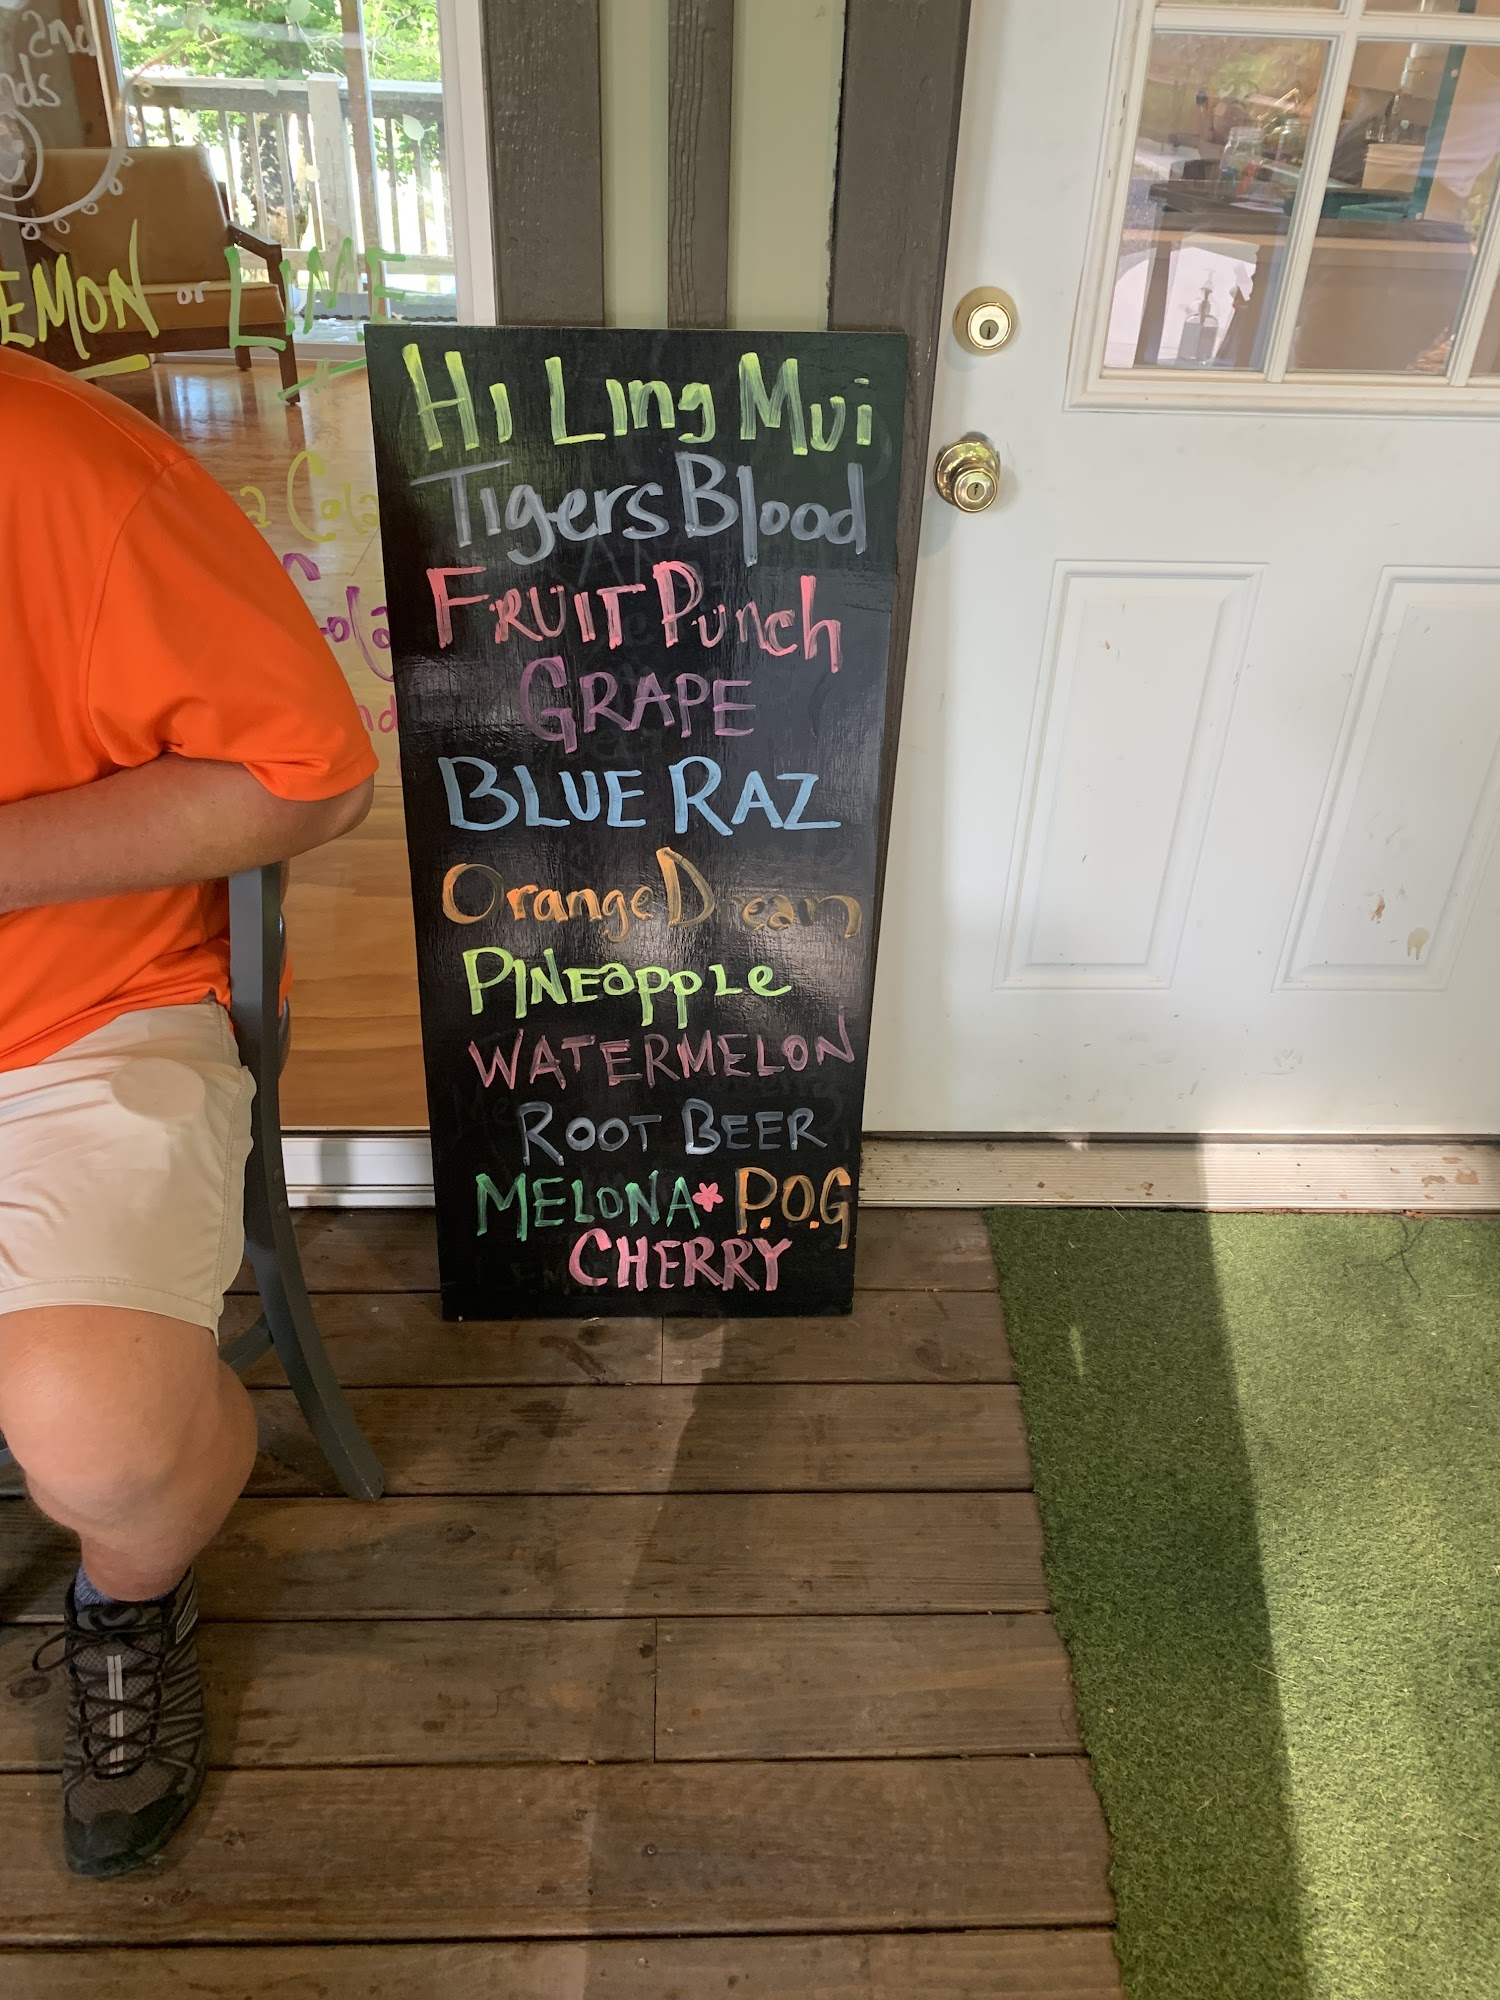 LEMON or LIME
Cola
Cola
Hi Ling Mui
Tigers Blood
FRUIT Punch
GRAPE
BLUE RAZ
Orange Dream
PINEapple
WATERMELON
ROOT BEER
MELONA* P.O.G
CHERRY